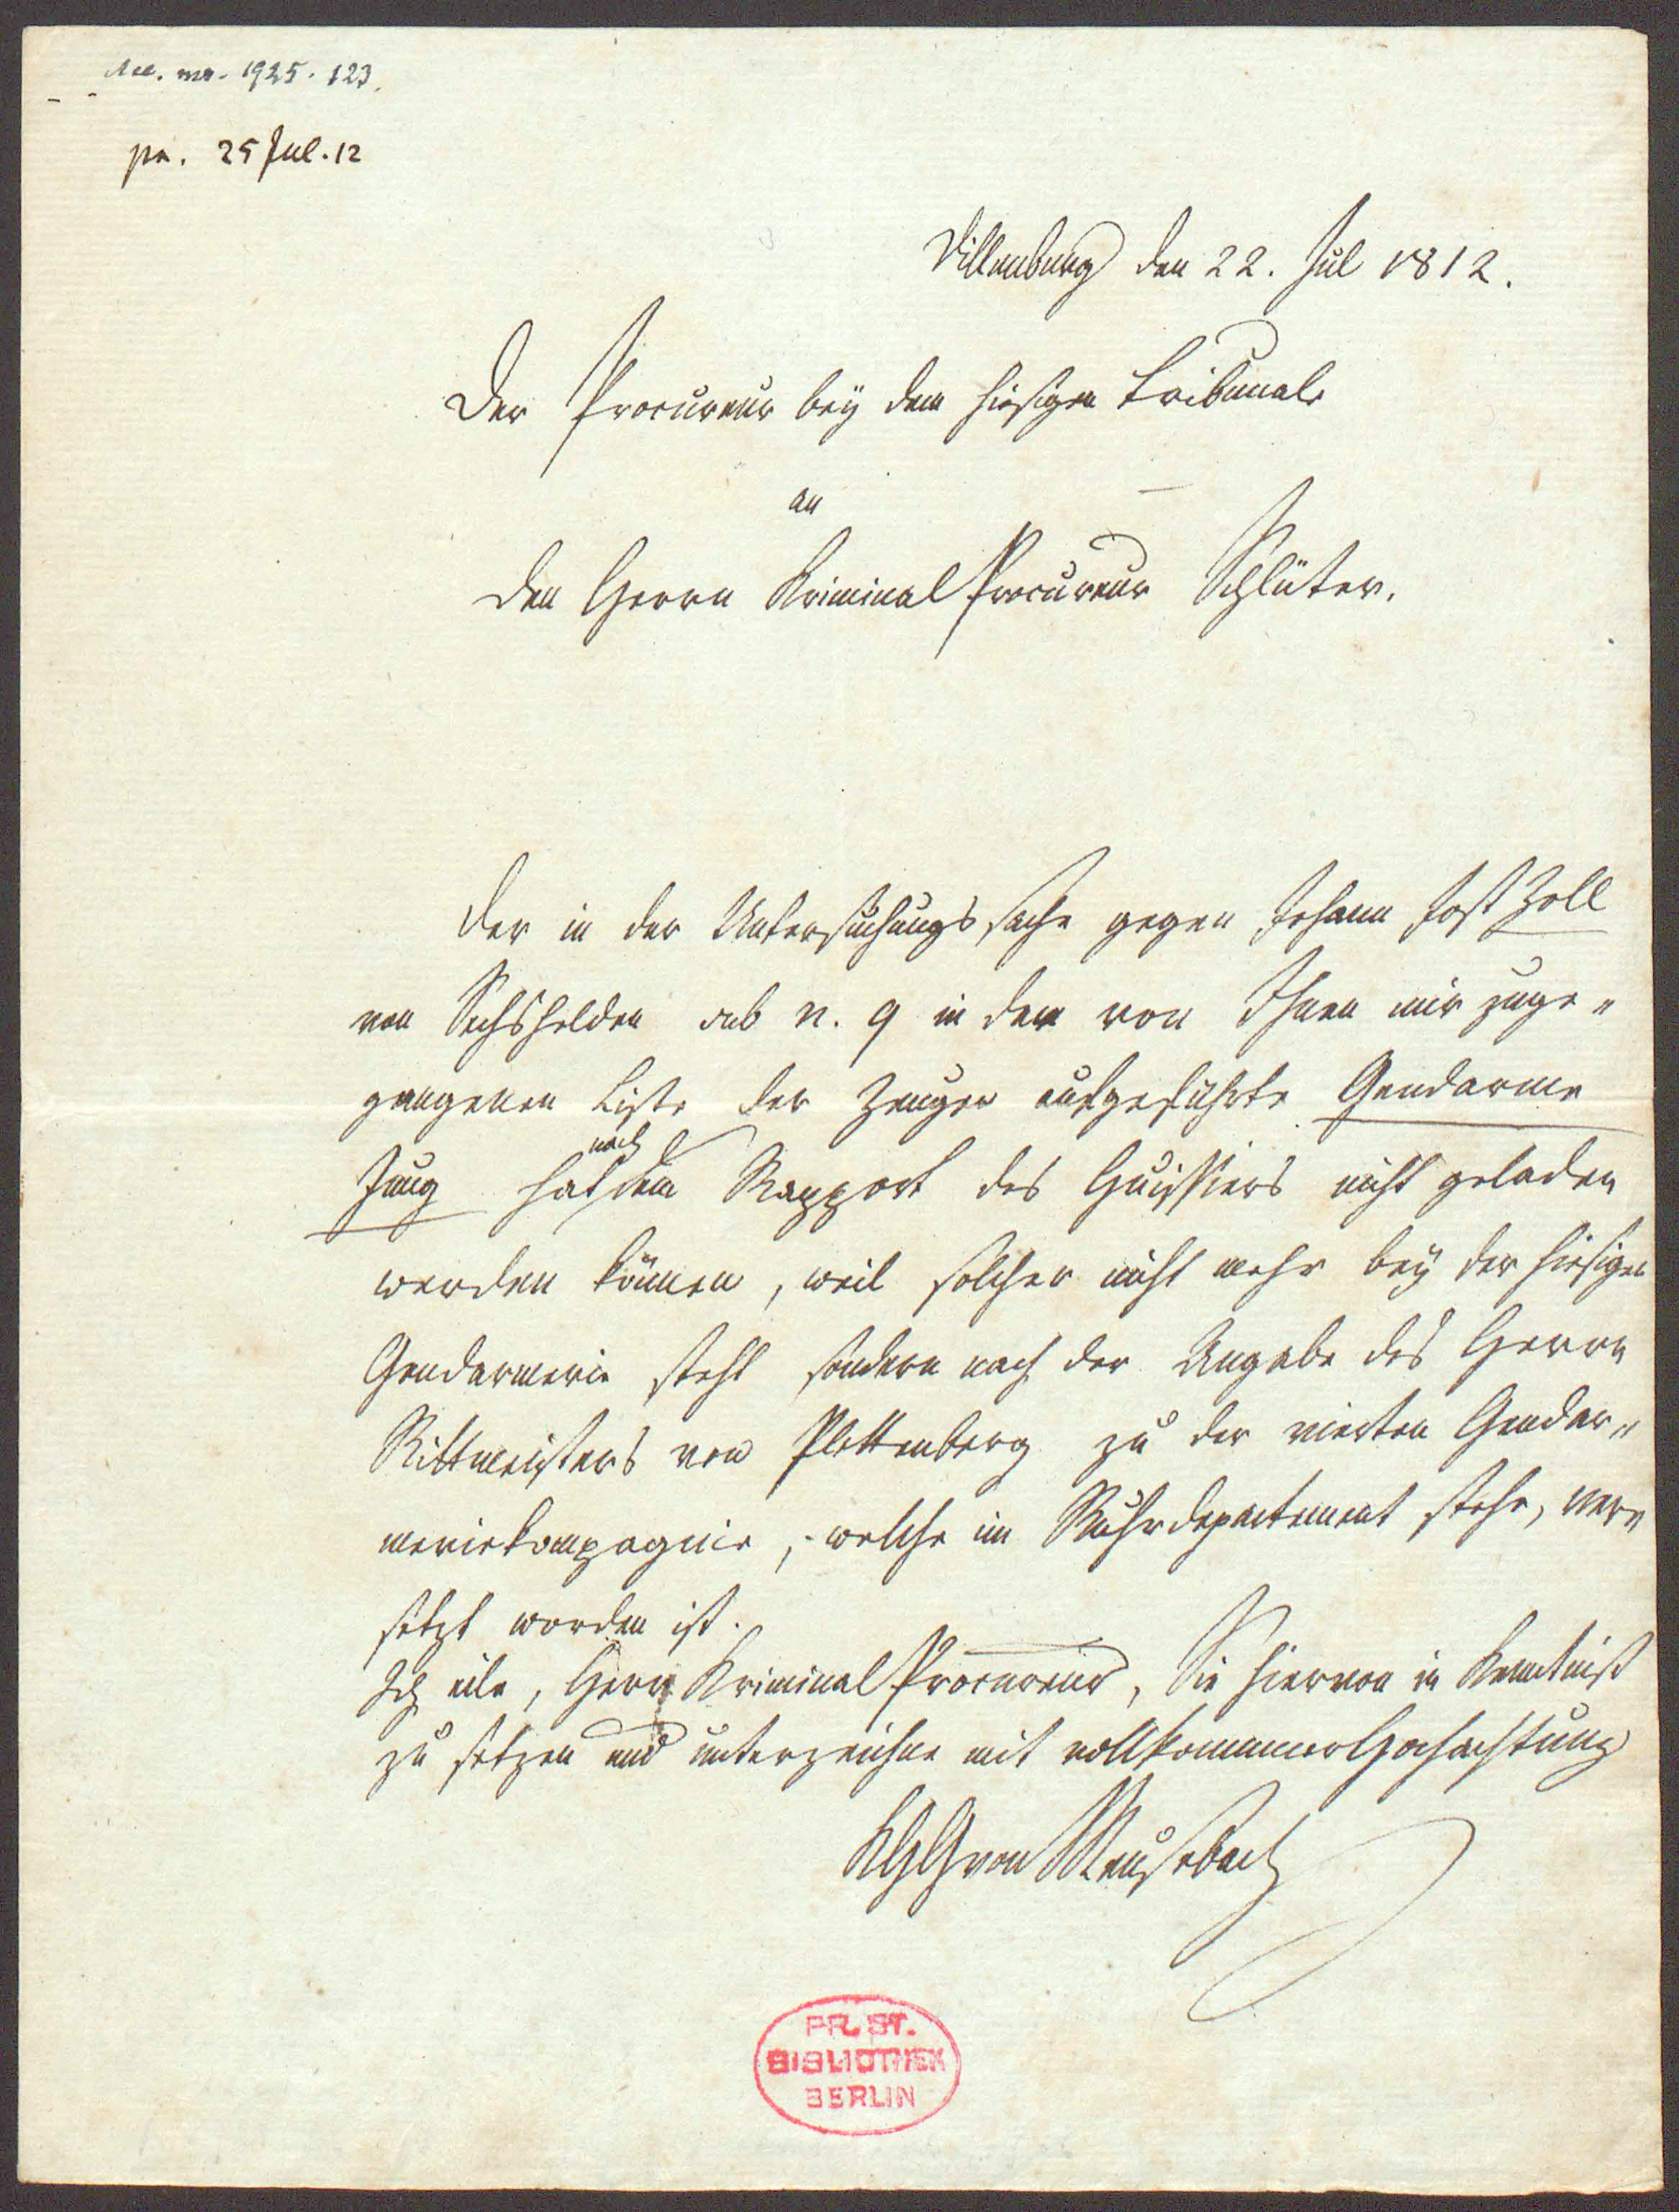 Acc. ms. 1925. 123.
pr. 25 Jul. 12
Dillenburg den 22. Jul 1812.
Der Procureur bey dem hiesigen Tribunale
an
den Herrn Kriminal Procureur Schlüter.
Der in der Untersuchungssache gegen Johann Jost Zoll
von Sechshelden sub n. 9 in der von Ihnen mir zuge-
gangenen Liste der Zeugen aufgeführte Gendarme
Jung hat nach dem Rapport des Huissiers nicht geladen
werden können, weil solcher nicht mehr bey der hiesigen
Gendarmerie steht sondern nach der Angabe des Herrn
Rittmeisters von Plettenberg zu der vierten Gendar-
meriekompagnie, welche im Ruhrdepartement stehe, ver-
setzt worden ist.
Ich eile, Herr Kriminal Procureur, Sie hiervon in Kenntniß
zu setzen und unterzeichne mit vollkommner Hochachtung
KHG von Meusebach
PR. ST.
BIBLIOTHEK
BERLIN